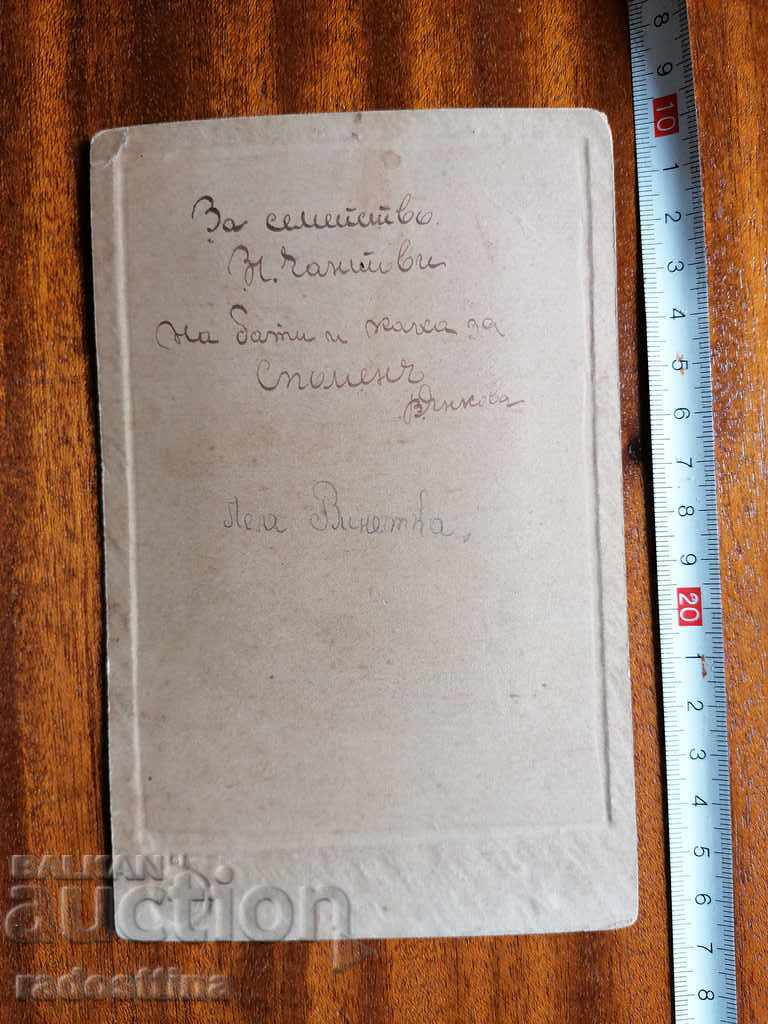 За семейство.
Н. Чантови
На бати и кака за
Споменъ
В Янкова
Леля Винетка.
8 9 10 1 2 3 4 5 6 7 8 9 20 1 2 3 4 5 6 7 8
BALKAN
auction
radosttina